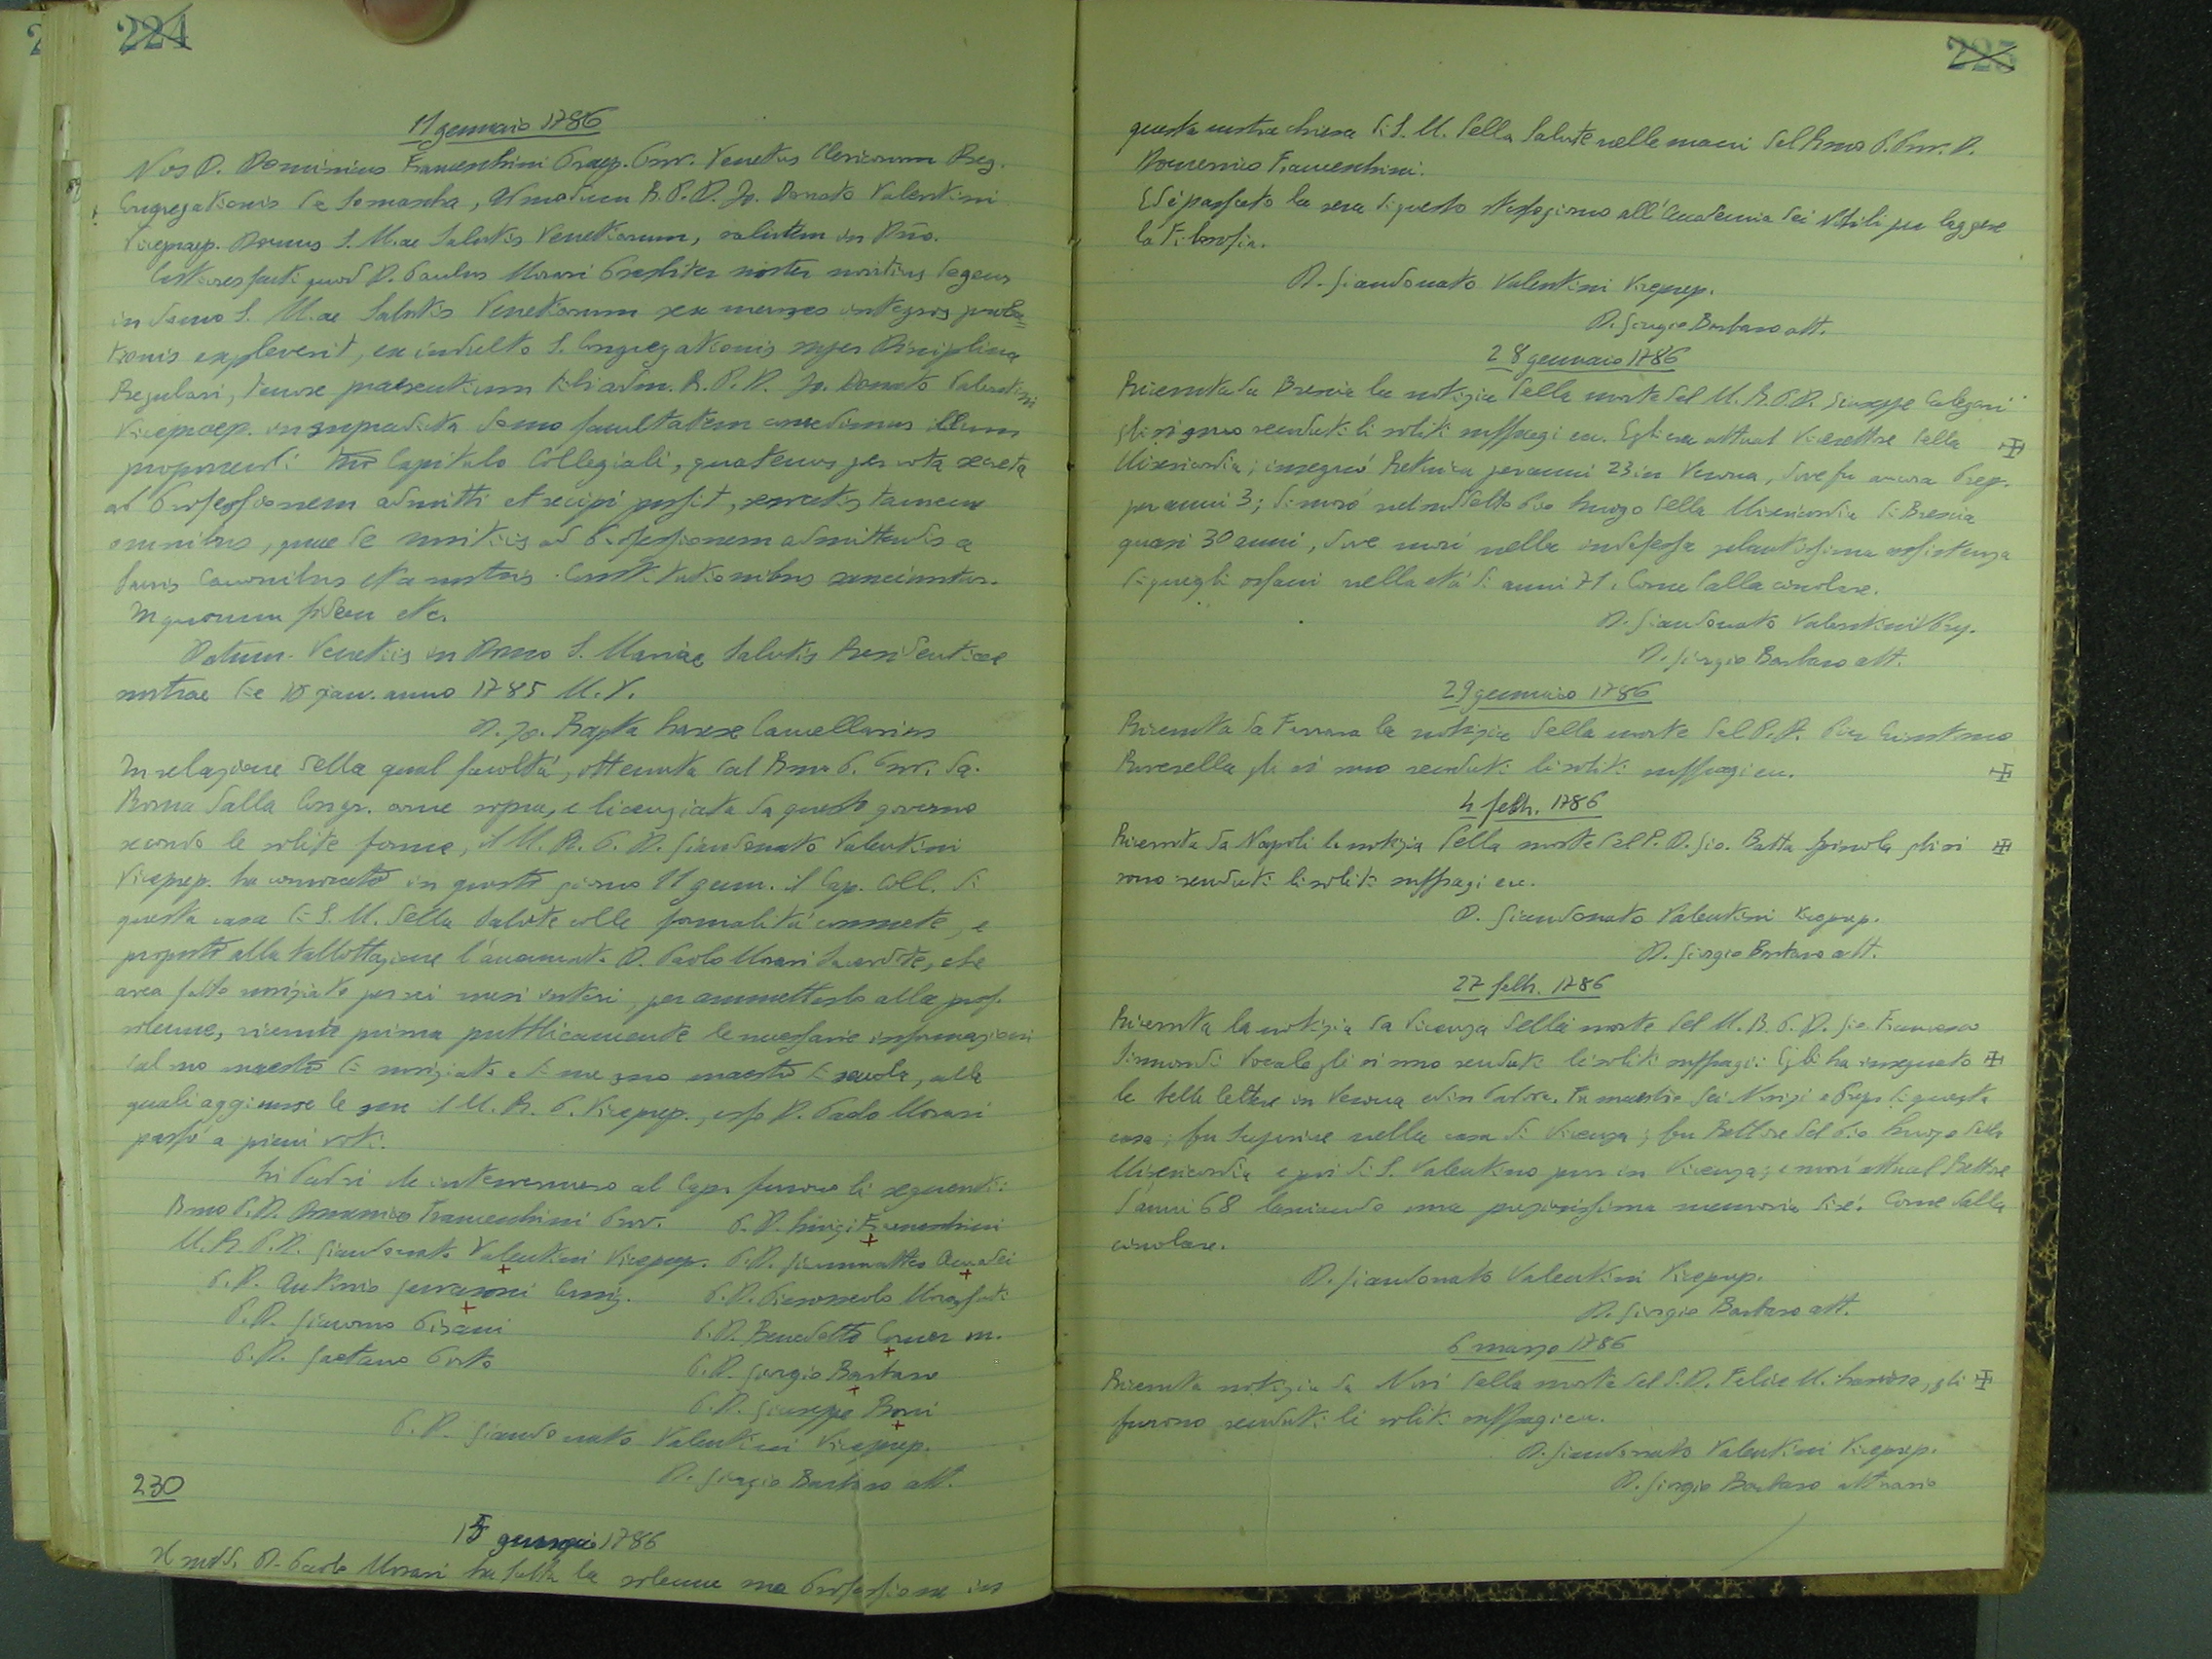 224
11 gennaio 1786
Nos D. Dominicus Franceschini Praep. Prov. Venetus Clericorum Reg.
Congregationis de Somascha, Admodum R. P. D. Jo. Donato Valentini
Vicepraep. Domus S. M.ae Salutis Venetiarum, salutem in Dno.
Certiores facti quod D. Paulus Morari Presbiter noster novitius degens
in domo S. M.ae Salutis Venetiarum sex menses integros proba=
tionis expleverit, ex indulto S. Congregationis super Disciplina
Regulari, tenore praesentium tibi adm. R. P. D. Jo. Donato Valentini
Vicepraep. in supradicta domo facultatem concedimus illum
proponendi Capitulo Collegiali, quatenus per vota secreta
ad Professionem admitti et recipi possit, servatis tamen
omnibus, quae de novitiis ad Professionem admittendis a
Sacris Canonibus et a nostris Constitutionibus sanciuntur.
In quorum fidem etc.
Datum Venetiis in Domo S. Mariae Salutis Residentiae
nostrae die 10 jan. anno 1785 M.V.
D. Jo. Bapta Cancellarius
In relazione della qual facoltà, ottenuta dal Rmo P. Prov. da
Roma dalla Congr. come sopra, e licenziata da questo governo
secondo le solite forme, il M. R. P. D. Giandonato Valentini
Viceprep. ha convocato in questo giorno 11 genn. il Cap. Coll. di
questa casa di S. M. della Salute colle formalità consuete, e
proposto alla ballottazione l'anzinomt. D. Paolo Morari Sacerdote, che
avea fatto noviziato per sei mesi interi, per ammetterlo alla prof.
solenne, sentite prima pubblicamente le necessarie informazioni
dal suo maestro di noviziato e di suo maestro di scuola, alle
quali aggiunse le sue il M. R. P. Viceprep., esso D. Paolo Morari
passò a pieni voti.
Li Padri che intervennero al Cap. furono li seguenti:
Rmo P. D. Domenico Franceschini Prov. P. D. Luigi Franceschini
M. R. P. D. Giandonato Valentini Viceprep. P. D. Giammatteo Amadei
P. D. Antonio Gervasoni Consig. P. D. Pierpaolo
P. D. Giacomo Pisani P. D. Benedetto Corner m.
P. D. Gaetano Porto P. D. Giorgio Barbaro
P. D. Giuseppe Boni
P. D. Giandonato Valentini Viceprep.
D. Giorgio Barbaro att.
230
15 gennaio 1786
Il sudd. D. Paolo Morari ha fatto la solenne sua Professione in
225
questa nostra chiesa di S. M. della Salute nelle mani del Rmo P. Prov. D.
Domenico Franceschini.
Ed è passato la sera di questo stesso giorno all'Accademia dei Nobili per leggere
la Filosofia.
D. Giandonato Valentini Viceprep.
D. Giorgio Barbaro att.
28 gennaio 1786
Ricevuta da Brescia la notizia della morte del M. R. P. D. Giuseppe Calegari
gli si sono renduti li soliti suffragi ecc. Egli era attual Vicerettore della
Misericordia; insegnò Retorica per anni 23 in Verona, dove fu ancora Prep.
per anni 3; dimorò nel suddetto Pio Luogo della Misericordia di Brescia
quasi 30 anni, dove morì nella indefessa zelantissima assistenza
di quegli orfani nella età di anni 71. Come dalla circolare.
D. Giandonato Valentini VPrep.
D. Giorgio Barbaro att.
29 gennaio 1786
Ricevuta da Ferrara la notizia della morte del P. D. Pier Crisostomo
Roverella gli si sono renduti li soliti suffragi ecc.
4 febb. 1786
Ricevuta da Napoli la notizia della morte del P. D. Gio. Batta Spinola gli si
sono renduti li soliti suffragi ecc.
D. Giandonato Valentini Viceprep.
D. Giorgio Barbaro att.
27 febb. 1786
Ricevuta la notizia da Vicenza della morte del M. R. P. D. Gio. Francesco
Vocale gli si sono renduti li soliti suffragi: Egli ha insegnato
le belle lettere in Verona ed in Padova. Fu maestro dei Novizi e Prep. di questa
casa; fu Superiore nella casa di Vicenza; fu Rettore del Pio Luogo della
Misericordia e poi di S. Valentino pur in Vicenza; e morì attual Rettore
d'anni 68 lasciando una preziosissima memoria di sé. Come dalla
circolare.
D. Giandonato Valentini Viceprep.
D. Giorgio Barbaro att.
6 marzo 1786
Ricevuta notizia da Novi della morte del P. D. Felice M. gli
furono renduti li soliti suffragi ecc.
D. Giandonato Valentini Viceprep.
D. Giorgio Barbaro attuario